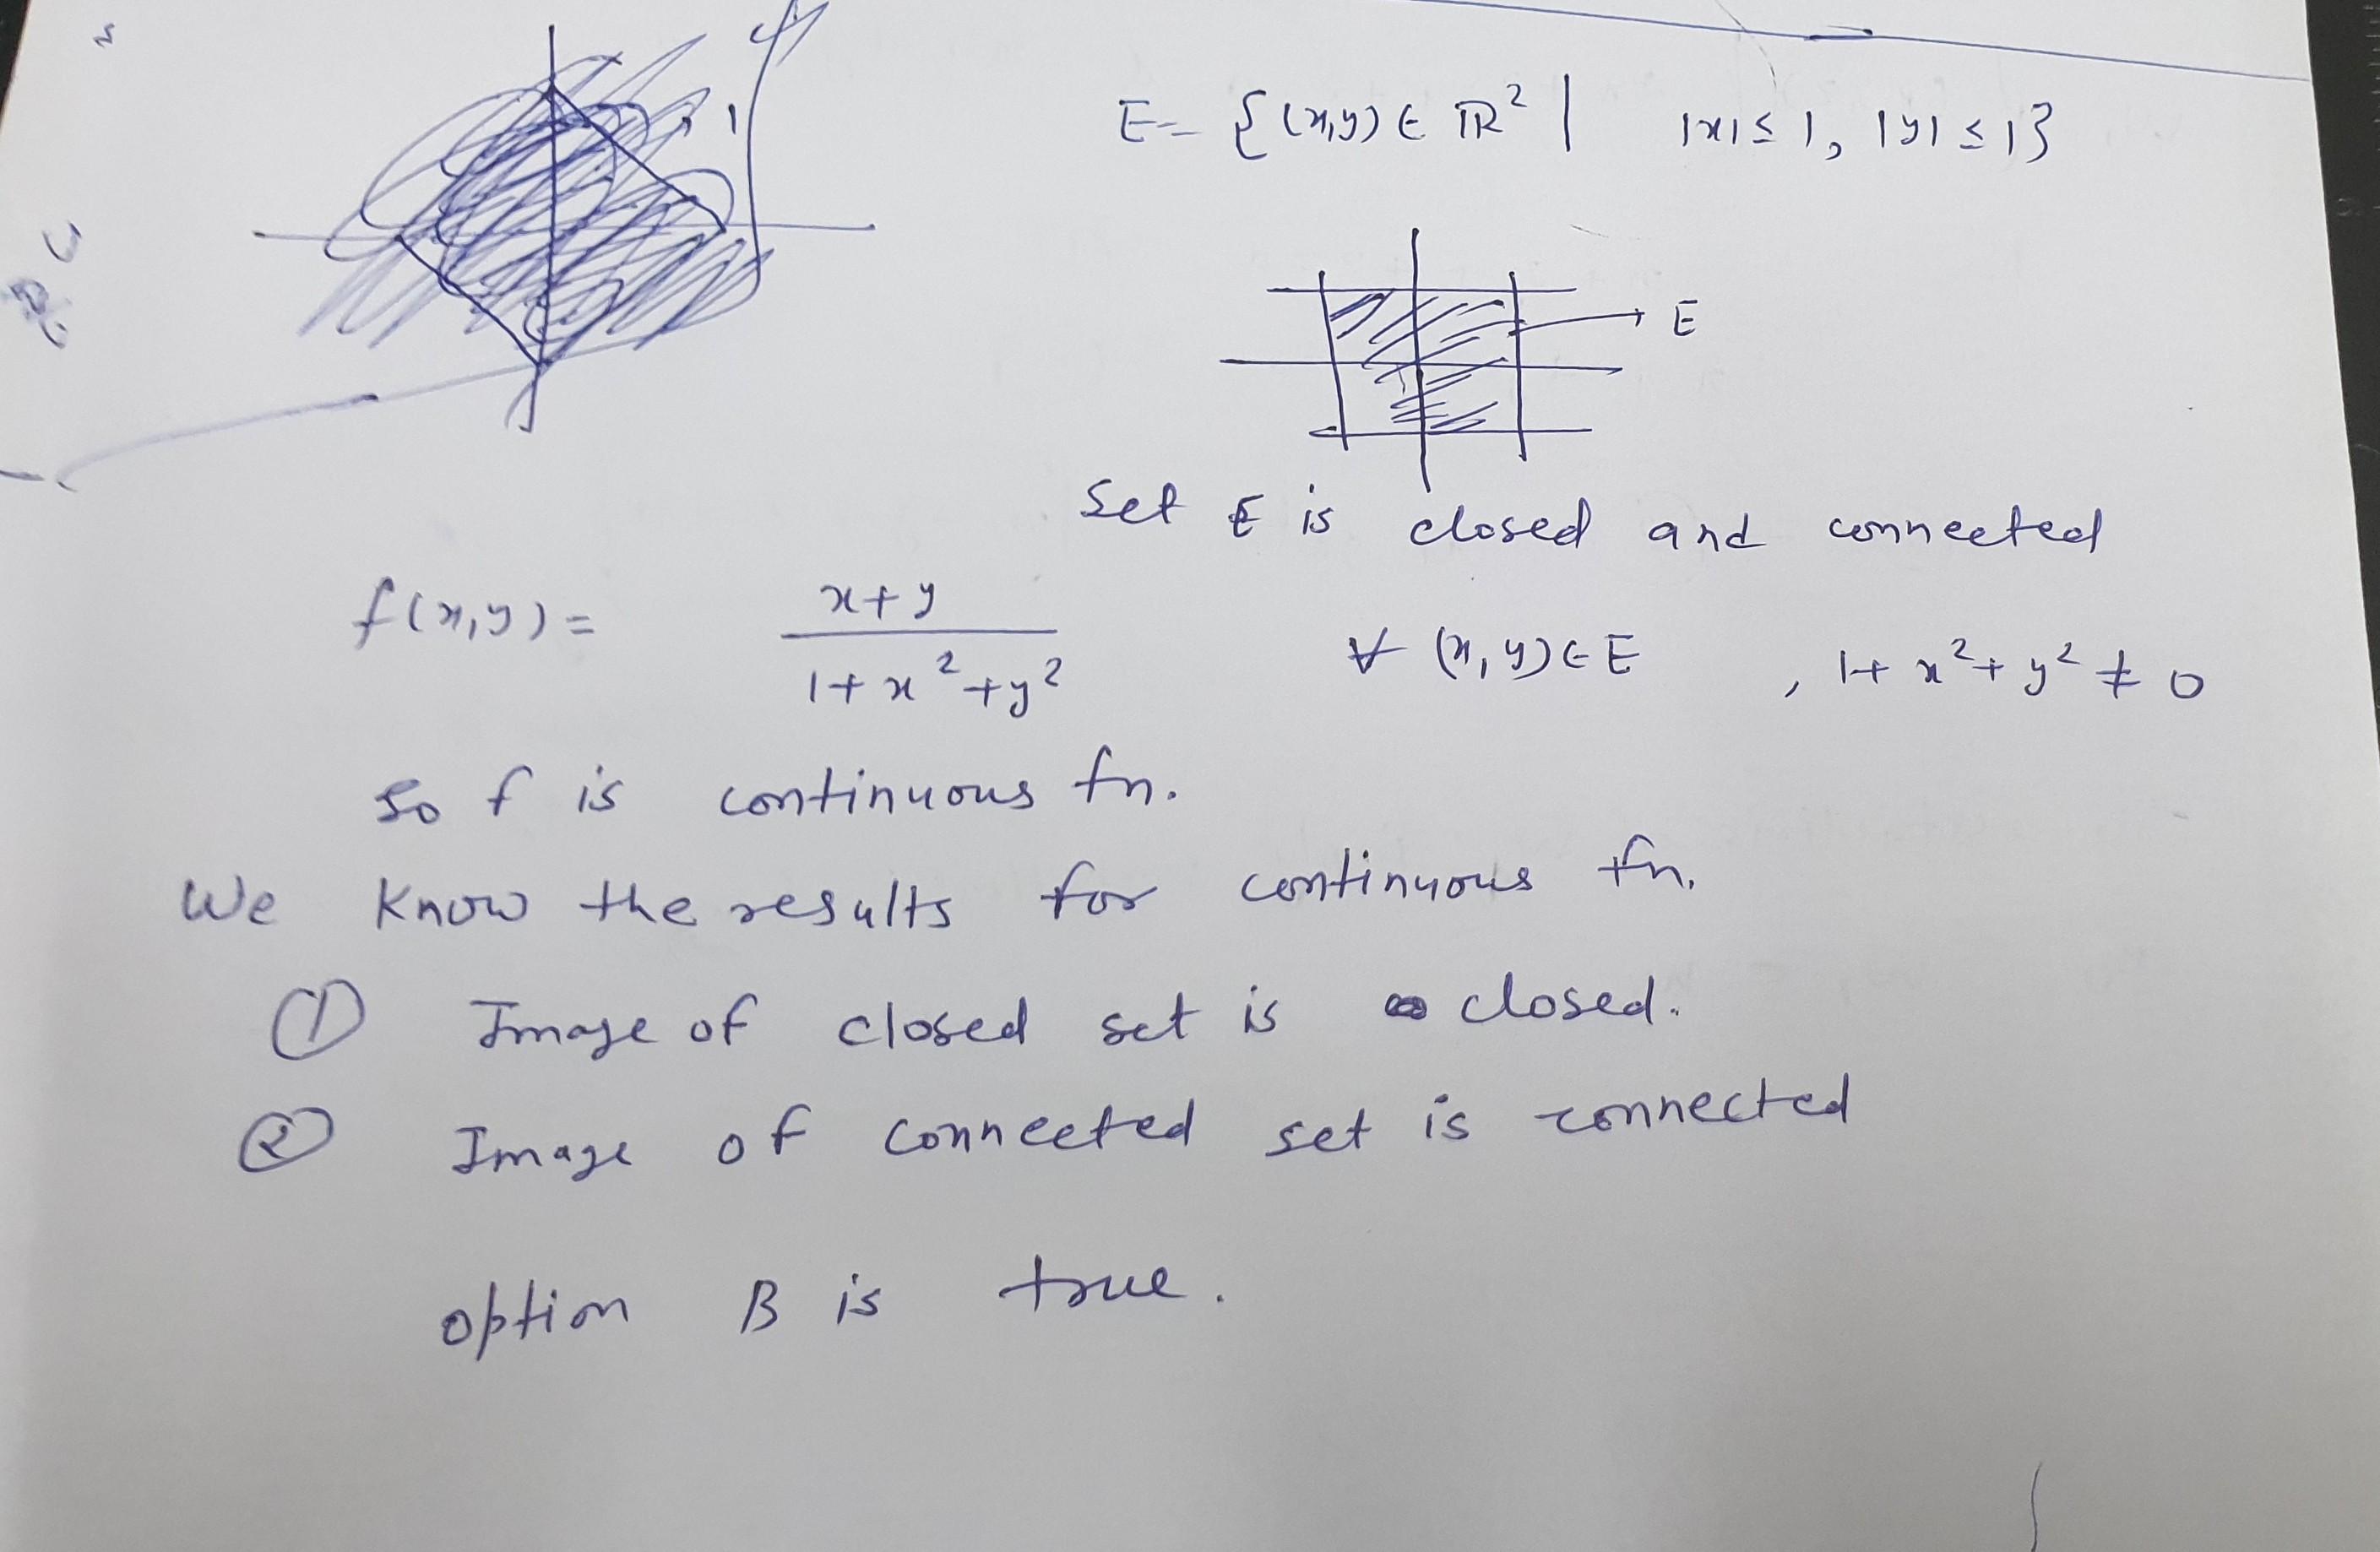 E = {(x,y) ∈ ℝ² | |x| ≤ 1, |y| ≤ 1}
1
E
Set E is closed and connected
f(x,y) = x+y / 1+x²+y² ∀ (x,y) ∈ E , 1+x²+y² ≠ 0
So f is continuous fn.
We know the results for continuous fn.
① Image of closed set is closed.
② Image of connected set is connected
option B is true.